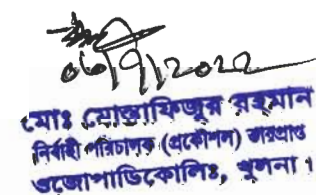 ০৬/৭/২০২২
মোঃ মোস্তাফিজুর রহমান
নির্বাহী পরিচালক (প্রকৌশল) ভারপ্রাপ্ত
ওজোপাডিকোলিঃ, খুলনা ।